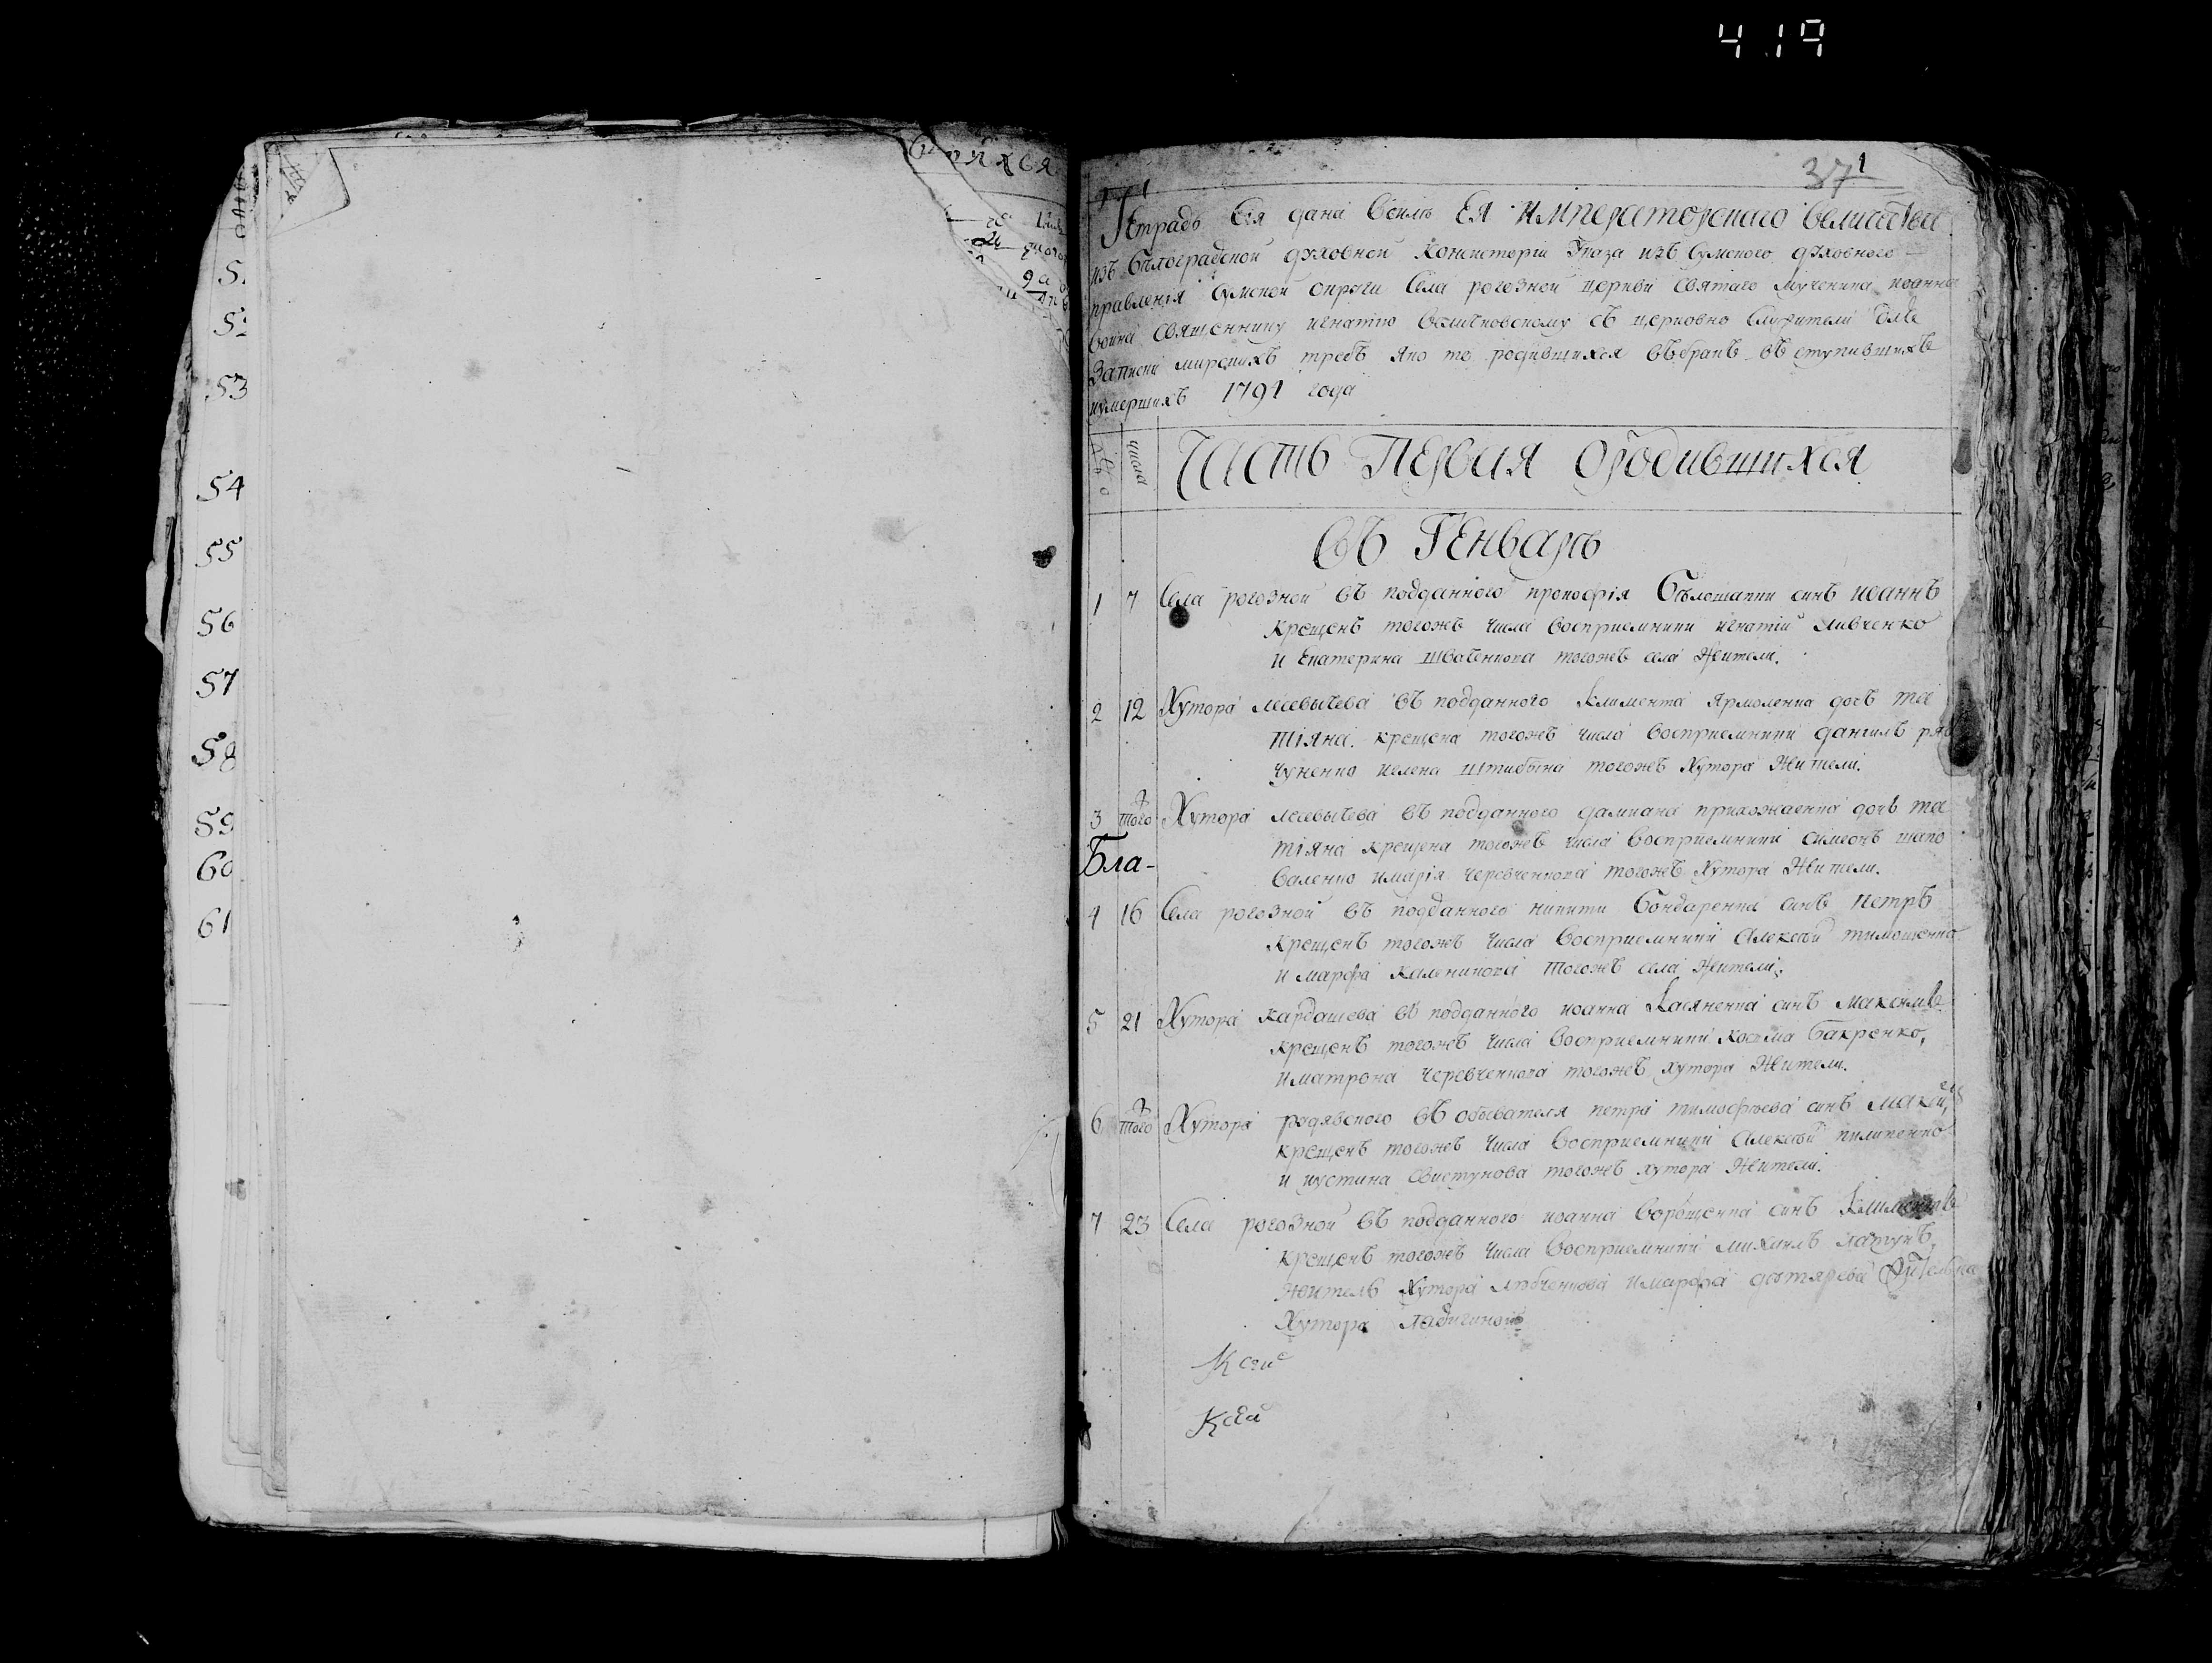 419
51
52
53
54
55
56
57
58
59
60
61
37 1
Тетрадь Сія дана Всилъ Ея Императорскаго Величества
изъ Бѣлоградской духовной Консисторіи Указа изъ Сумского духовного
правленія Сумской округи Села рогозной церкви Святаго Мученика иоанна
воина Священнику игнатию Величковскому съ церковно Служители для
Записки мирскихъ требъ яко то родившихся въбракъ въступившихъ
иумершихъ 1791 года
числа
Часть Первая Ородившихся
Въ Генварѣ
1 7 Села рогозной въ подданного прокофія Бѣлошапки синъ иоаннъ
крещенъ тогожъ числа Восприемники игнатий
и Екатерина Шваченкова тогожъ села Жители.
2 12 Хутора лесевичева въ подданного Климента Ярмоленка дочь та
тіяна. крещена тогожъ числа восприемники данилъ
иелена тогожъ Хутора Жители.
3 того Хутора лесевичева въ подданного дамиана прихожаенка дочь та
тіяна крещена тогожъ числа Восприемники Симеонъ шапо
Бла-
валенко имарія Черевченкова тогожъ Хутора Жители.
4 16 Села рогозной въ подданного никити Бондаренка синъ петръ
крещенъ тогожъ числа Восприемники Алексѣй тимошенко
и марфа Каленикова тогожъ села Жители.
5 21 Хутора Кардашева въ подданного иоанна Касяненка синъ максимъ
крещенъ тогожъ числа Восприемники Косма Бакренко,
иматрона Черевченкова тогожъ хутора Жители.
6 того Хутора въ обывателя петра тимофѣева синъ
крещенъ тогожъ числа Восприемники Алексѣй пилипенко
и иустина Свистунова тогожъ хутора Жители.
7 23 Села рогозной въ подданного иоанна Ворощенка синъ Климентъ
крещенъ тогожъ числа Восприемники михаилъ
Житель Хутора имарфа дехтярева
Хутора